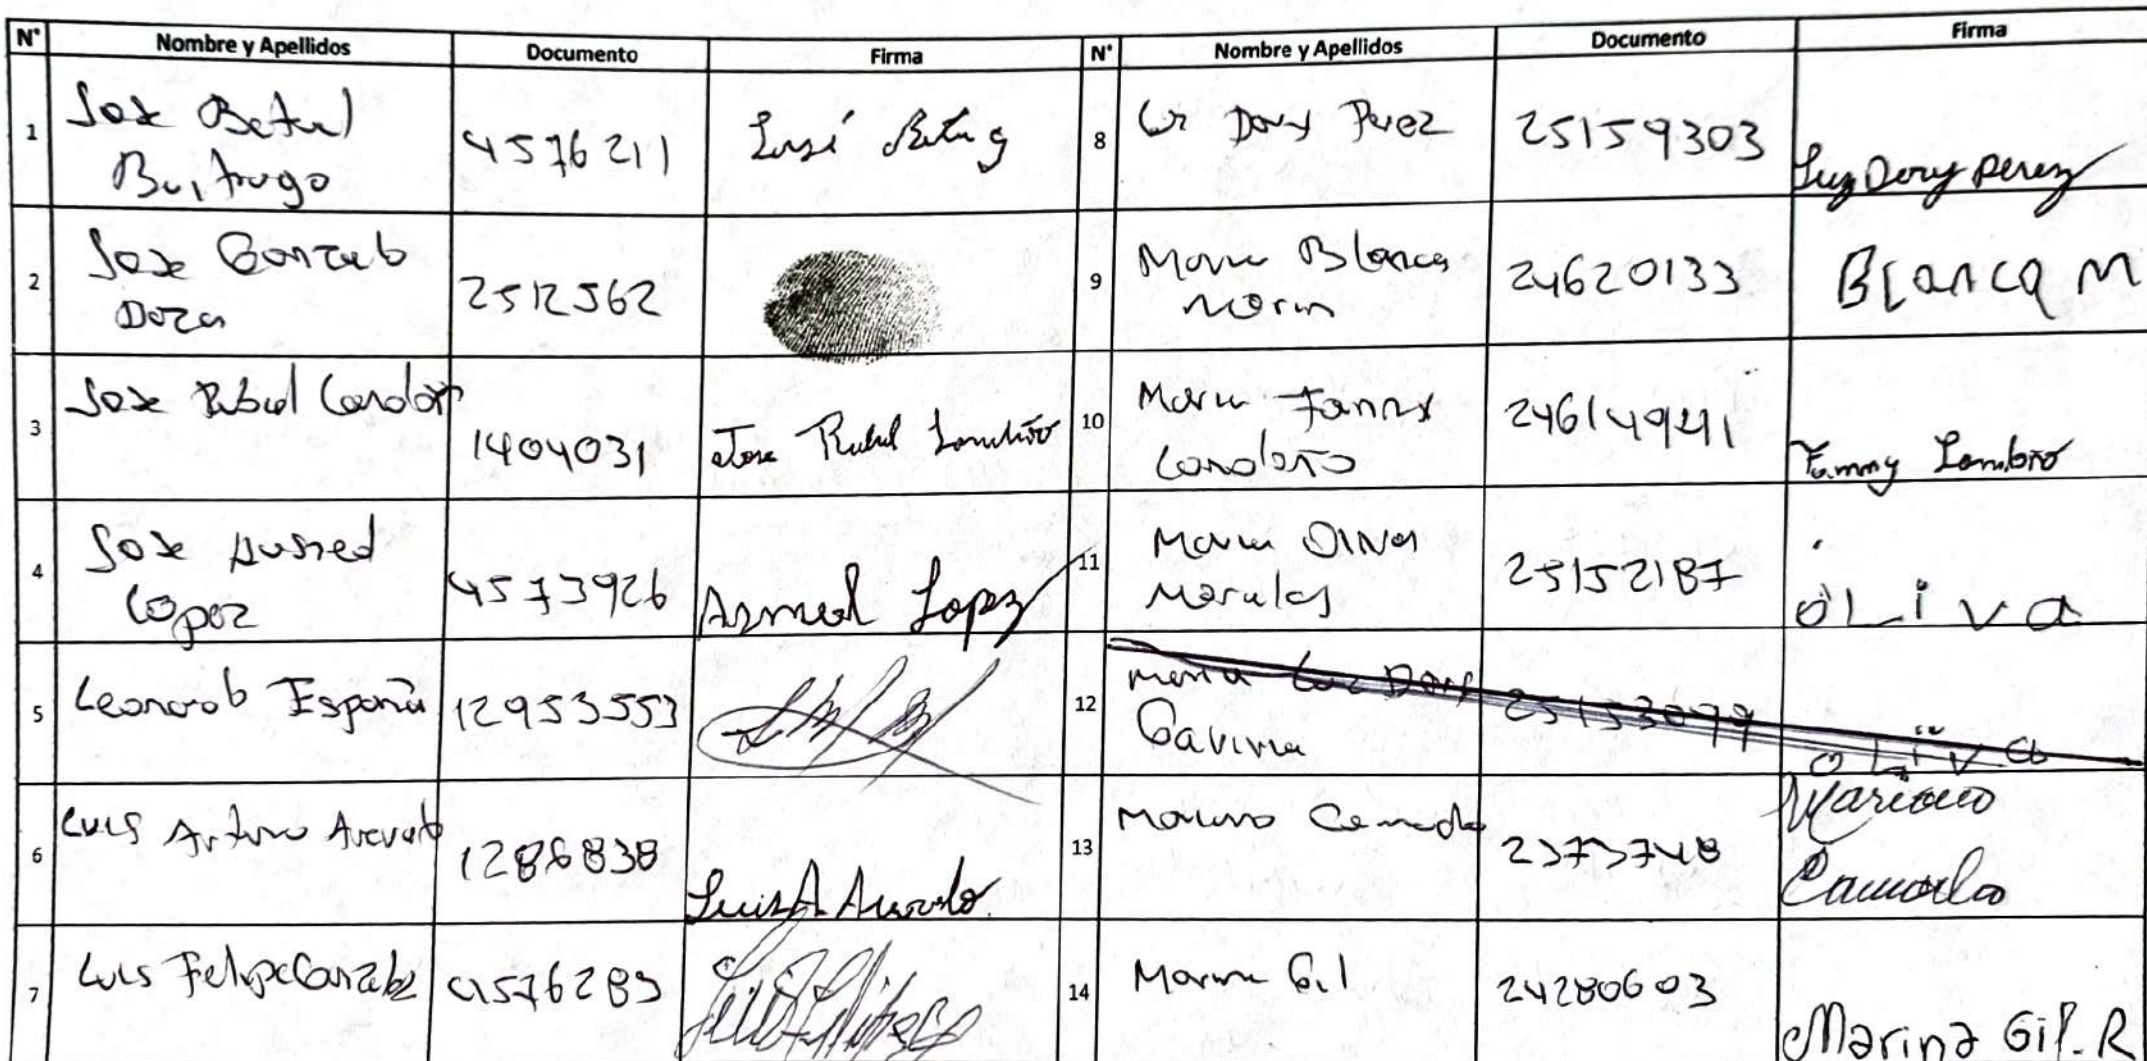 N° Nombre y Apellidos Documento Firma N° Nombre y Apellidos Documento Firma
1 Jose Betuel Buitrago 4576211 José Betu g
8 Luz Dory Perez 25159303 Luz Dory perez
2 Jose Gonzalo Daza 2512562
9 Maria Blanca Marin 24620133 BLanca M
3 Jose Rubiel Londoño 1404031 Jose Rubiel Londoño
10 Maria Fanny Londoño 24614941 Fanny Londoño
4 Jose Asmed Lopez 4573926 Asmed Lopez
11 Maria Oliva Morales 25152187 oLiva
5 Leonardo España 12953553
12 Maria Luz Dary Gaviria 25153079 oLiva
6 Luis Arturo Arevalo 1286838 Luis A. Arevalo
13 Mariano Camacho 2373748 Mariano
7 Luis Felipe Gonzalez 4576283
14 Marina Gil 24280603 Marina Gil. R